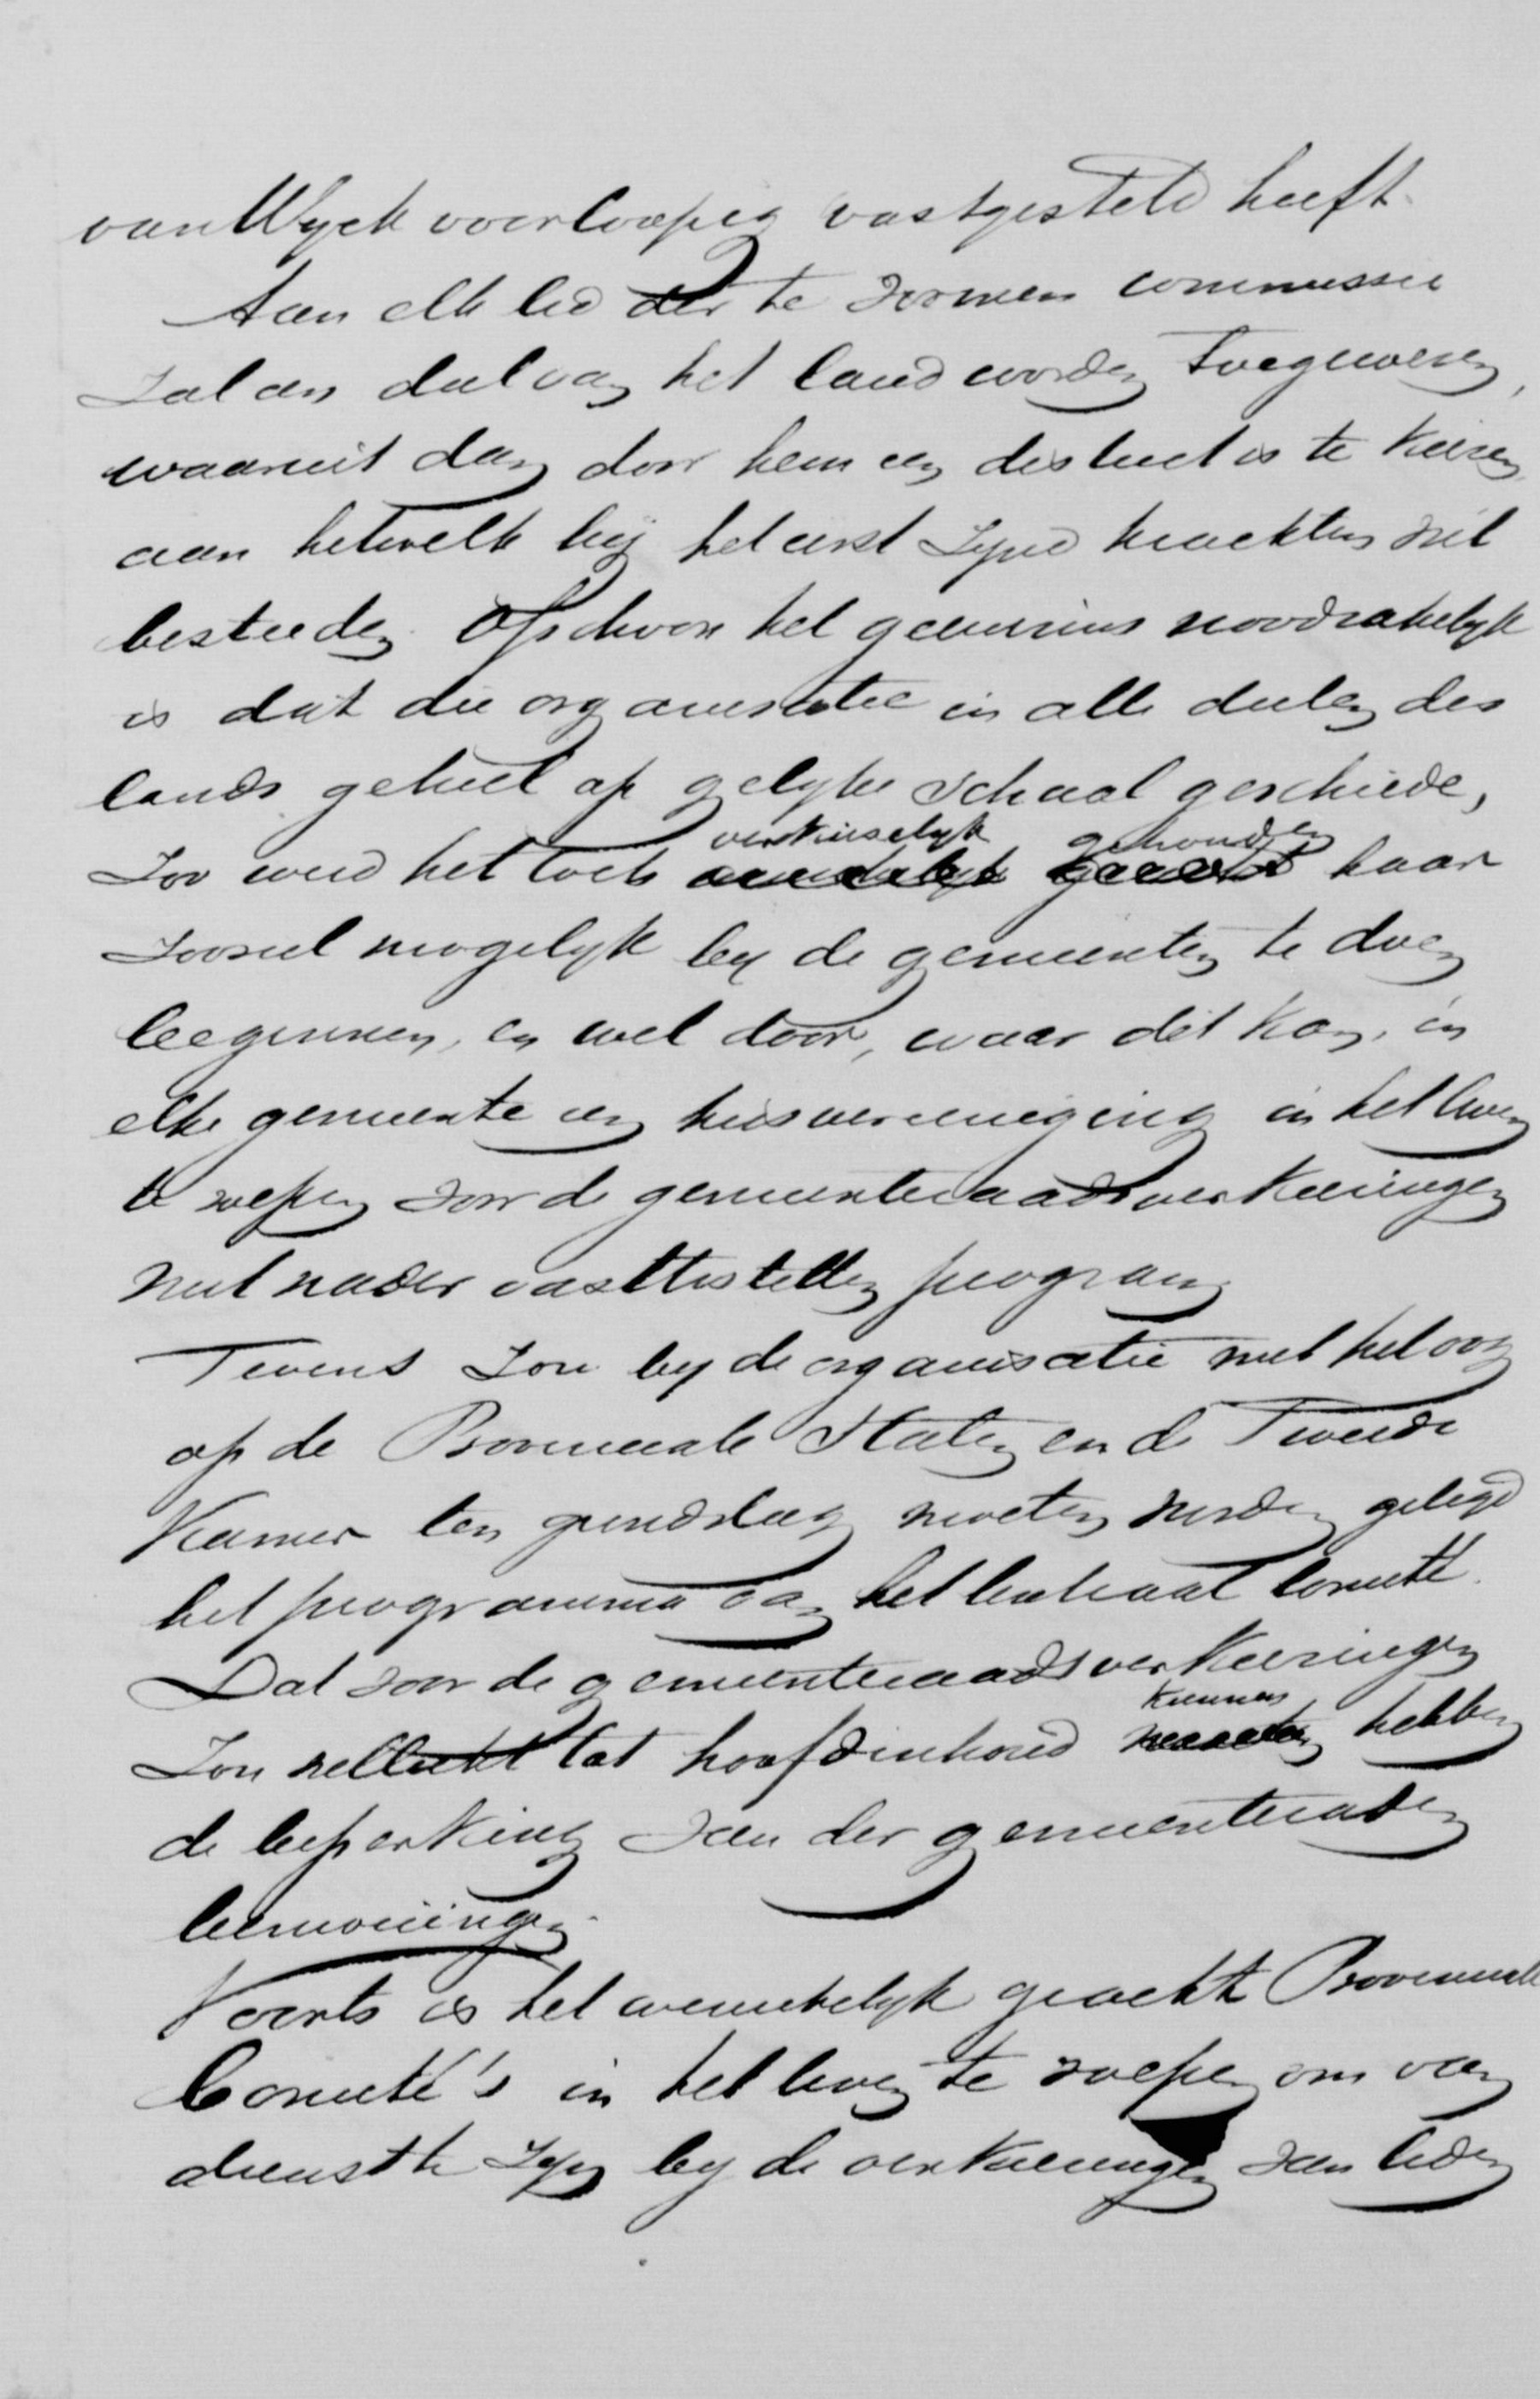 van Wijck voorloopig vastgesteld heeft.
Aan elk lid der te vormen commissie
zal een deel van het land worden toegewezen,
waaruit dan door hem een district is te kiezen
aan hetwelk hij het eerst zijne krachten zal
besteeden. Ofschoon het geenszins noodzakelijk
is dat die organisatie in alle deelen des
lands geheel op gelijke schaal geschiede,
zoo werd het toch verkieselijk gehouden haar
zooveel mogelijk bij de gemeenten te doen
beginnen, en wel door, waar dit kan, in
elke gemeente een kiesvereeniging in het leven
te roepen voor de gemeenteraadsverkiezingen
met nader vasttestellen program
Tevens zou bij de organisatie met het oog
op de Provinciale Staten en de Tweede
Kamer ten grondslag moeten worden gelegd
het programma van het Centraal Comité.
Dat voor de gemeenteraadsverkiezingen
zou wellicht tot hoofdinhoud kunnen hebben
de beperking van der gemeenteraden
bemoeiingen.
Voorts is het wenschelijk geacht Provinciale
Comité's in het leven te roepen om van
dienst te zijn bij de verkiezingen van leden